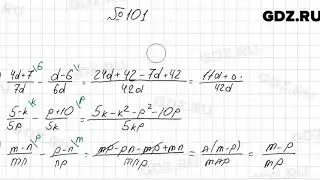 № 101
GDZ.RU
(4d+7)/7d \6 - (d-6)/6d \7 = (24d+42-7d+42)/42d = (17d+
(5-k)/5p \k - (p+10)/5k \p = (5k-k²-p²-10p)/5kp
(m-n)/mn \p - (p-n)/np \m = (mp-pn-mp+mn)/mnp = n(m-p)/mnp = (m-p)/mp